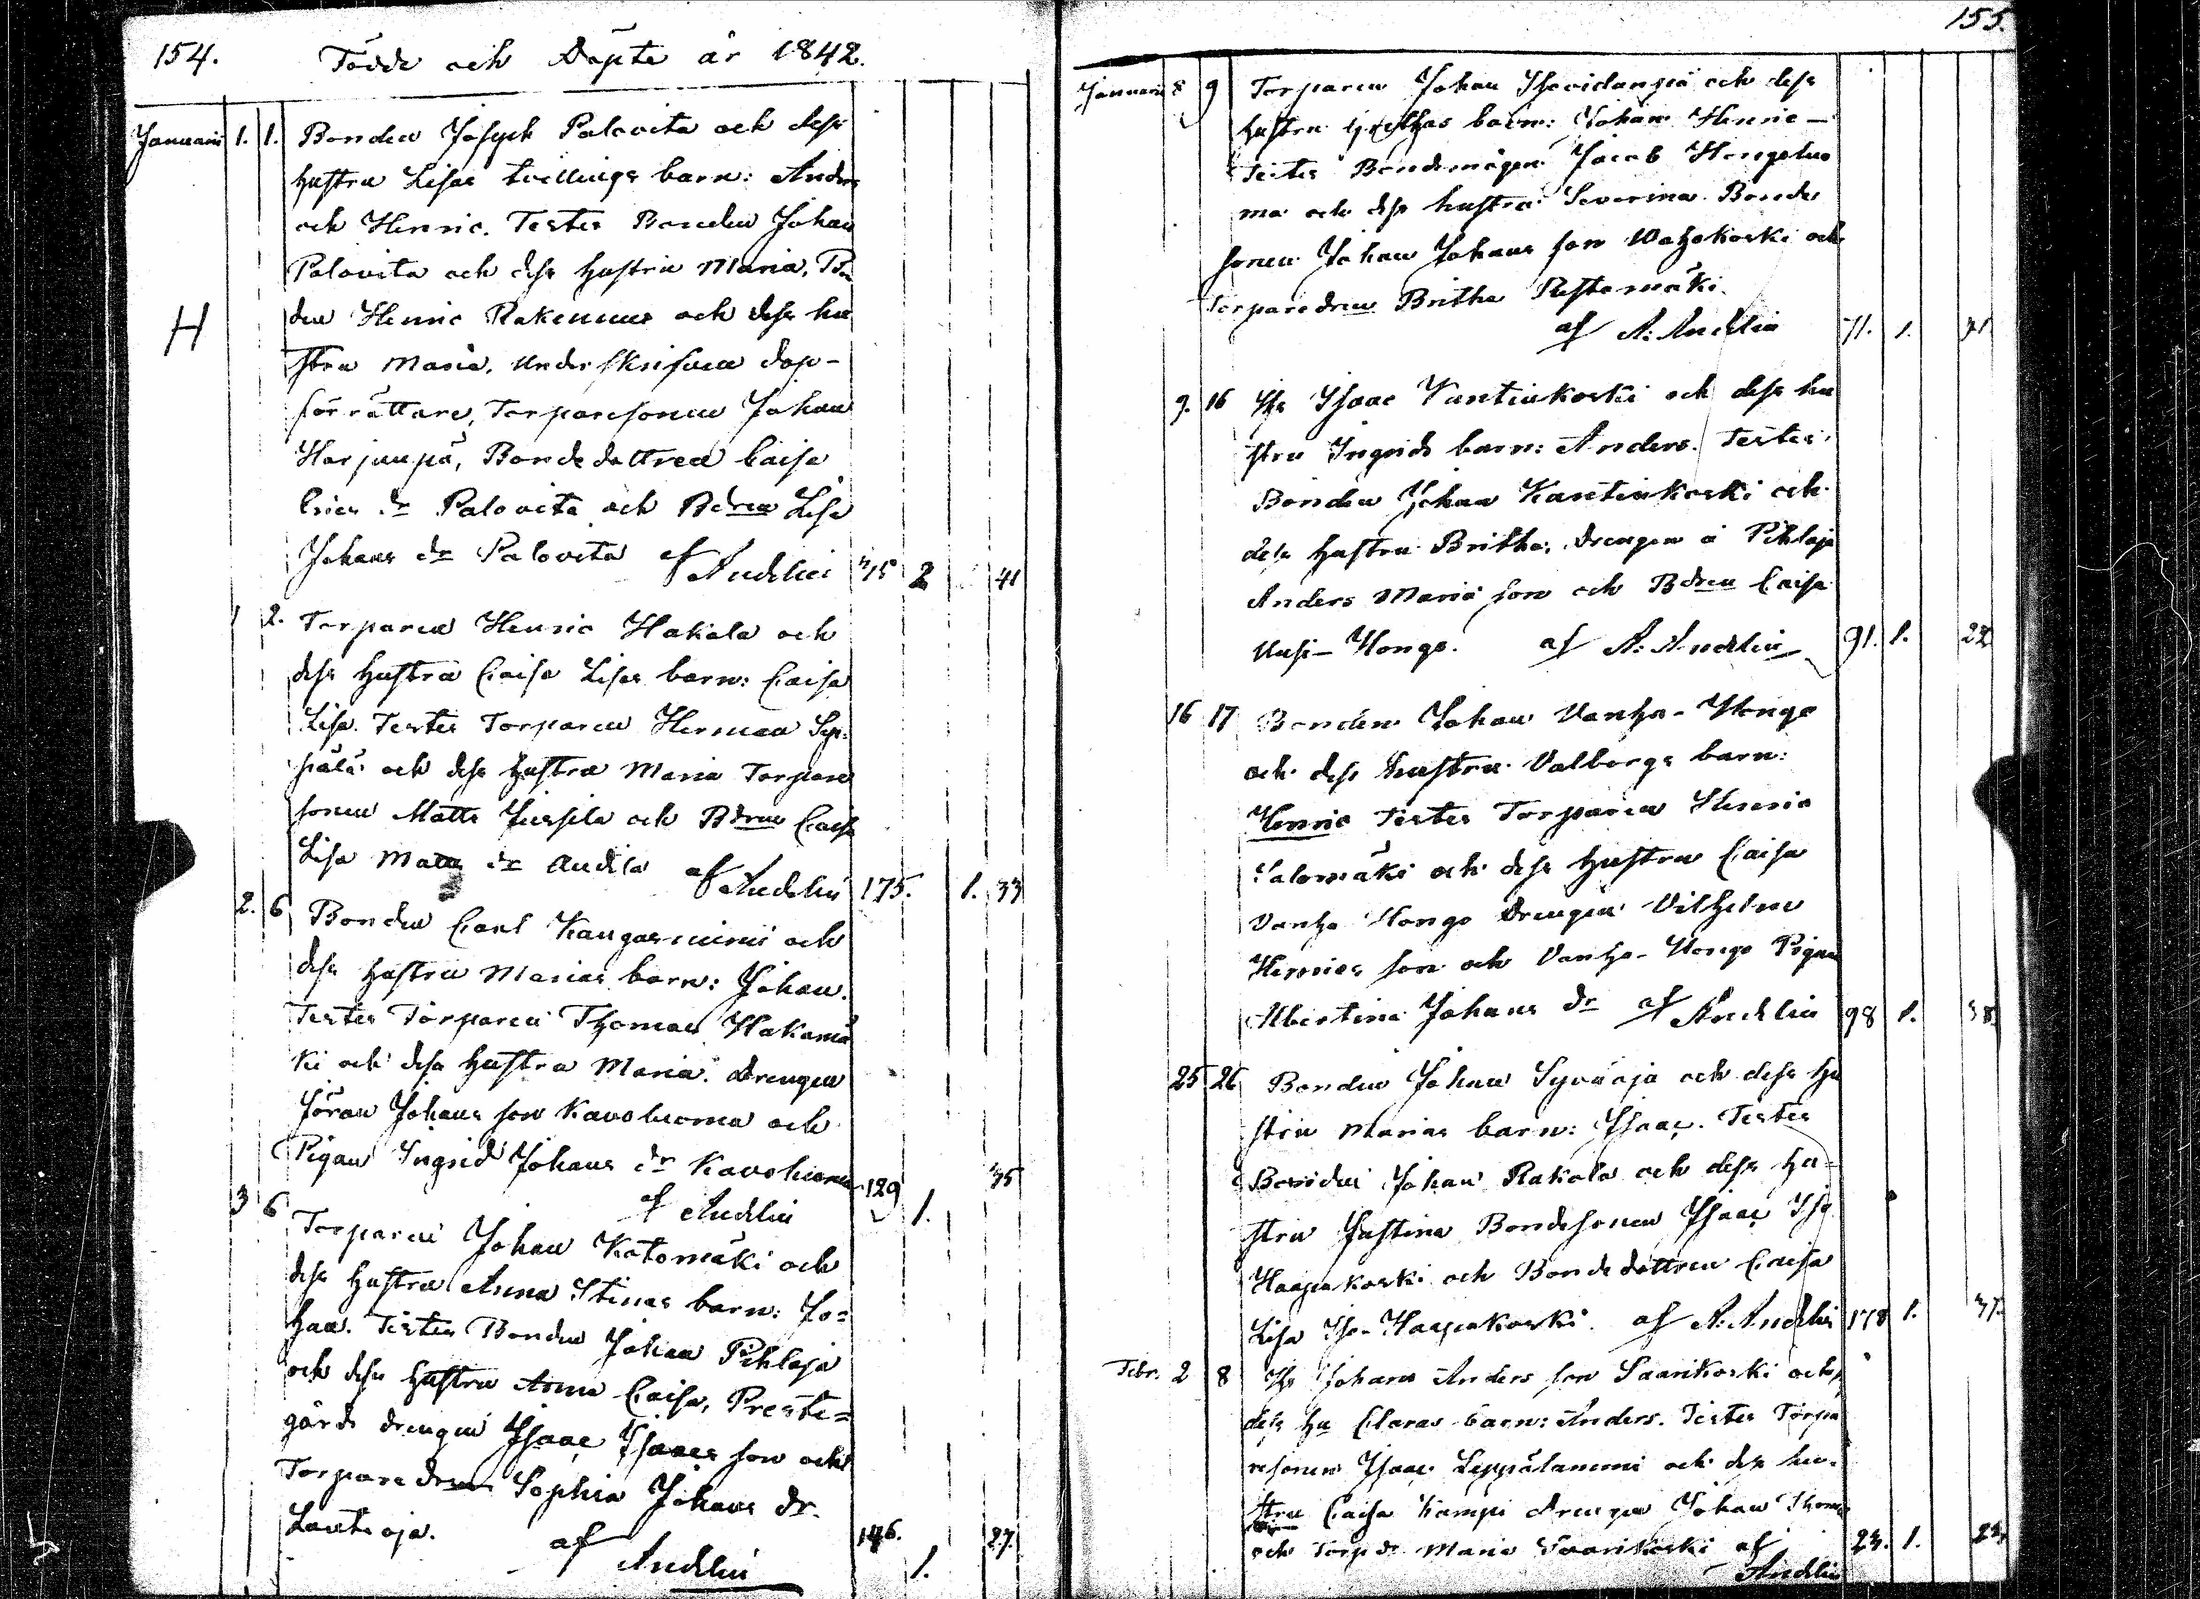 154.
Födde och Döpte år 1842.
Januarii 1. 1. Bonden Joseph Palovita och dess
hustru Lisas tvillings barn: Anders
och Henric. Testes Bonden Johan
Palovita och dess hustru Maria, Bon
den Henric Rakennus och dess hu
H
stru Maria, Underskrifven dop-
förrättare, Torparesonen Johan
Harjunpä, Bondedottren Caisa
Erics dr Palovita och Bdren Lisa
Johans dr Palovita af Andelin 2 41
1 2. Torparen Henric Hakala och
dess hustru Caisa Lisas barn: Caisa
Lisa. Testes Torparen Herman Sep-
pälä och dess hustru Maria Torpare
sonen Matts och Bdren Caisa
Lisa Matts dr af Andelin 175. 1. 33
2. 6 Bonden Carl Kangasniemi och
dess hustru Marias barn: Johan.
Testes Torparen Thomas Hakamä
ki och dess hustru Maria. Drengen
Jöran Johans son Kavoluoma och
Pigan Ingrid Johans dr Kavoluoma 129 35
af Andelin 1.
3 6 Torparen Johan Katomäki och
dess hustru Anna Stinas barn: Jo=
han. Testes Bonden Johan Pihlaja
och dess hustru Anna Caisa, Preste=
gårds drengen Isaac Isaacs son och
Torparedren Sophia Johans dr.
Lautoja. 146. 27.
af Andelin 1.
155.
Januarii 8 9 Torparen Johan och dess
hustru Grethas barn: Johan Henric —
Testes Bondemågen Jacob Hongoluo
ma och dess hustru Severina. Bonde
sonen Johan Johans son och
Torparedren Britha
af A. Andelin 71. 1. 41
9. 16 Isaac Kantinkoski och dess hu
stru Ingrids barn: Anders. Testes
Bonden Johan Kantinkoski och
dess hustru Britha, Drengen å Pihlaja
Anders Mariä son och Bdren Caisa
Uusi-Hongo. af A. Andelin 91. 1. 22
16 17 Bonden Johan Vanha-Hongo
och dess hustru Valborgs barn:
Henric Testes Torparen Henric
Salomäki och dess hustru Caisa
Vanha Hongo Drengen Vilhelm
Henrics son och Vanha-Hongo Pigan
Albertina Johans dr af Andelin 98 1. 38
25 26 Bonden Johan Syväoja och dess hu
stru Marias barn: Isaac. Testes
Bonden Johan Rakola och dess hu-
stru Justina Bondesonen Isaac Iso
Haapakoski och Bondedottren Caisa
Lisa Iso-Haapakoski. af A. Andelin 178 1. 37.
Febr. 2 8 Johans Anders son Saarikoski och
dess hu Claras barn: Anders. Testes Torpa
resonen Isaac Leppälaniemi och dess hu-
stru Caisa Kampi Drengen Johan Thomas
och Torp dr Maria Saarikoski af 23. 1. 23
Andelin